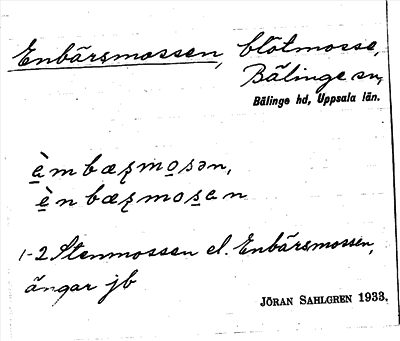 Enbärsmossen, blötmosse,
Bälinge sn,
Bälinge hd, Uppsala län.
èmbæʂmosən,
ènbæʂmosen
1-2 Stenmossen el. Enbärsmossen,
ängar jb
JÖRAN SAHLGREN 1933.